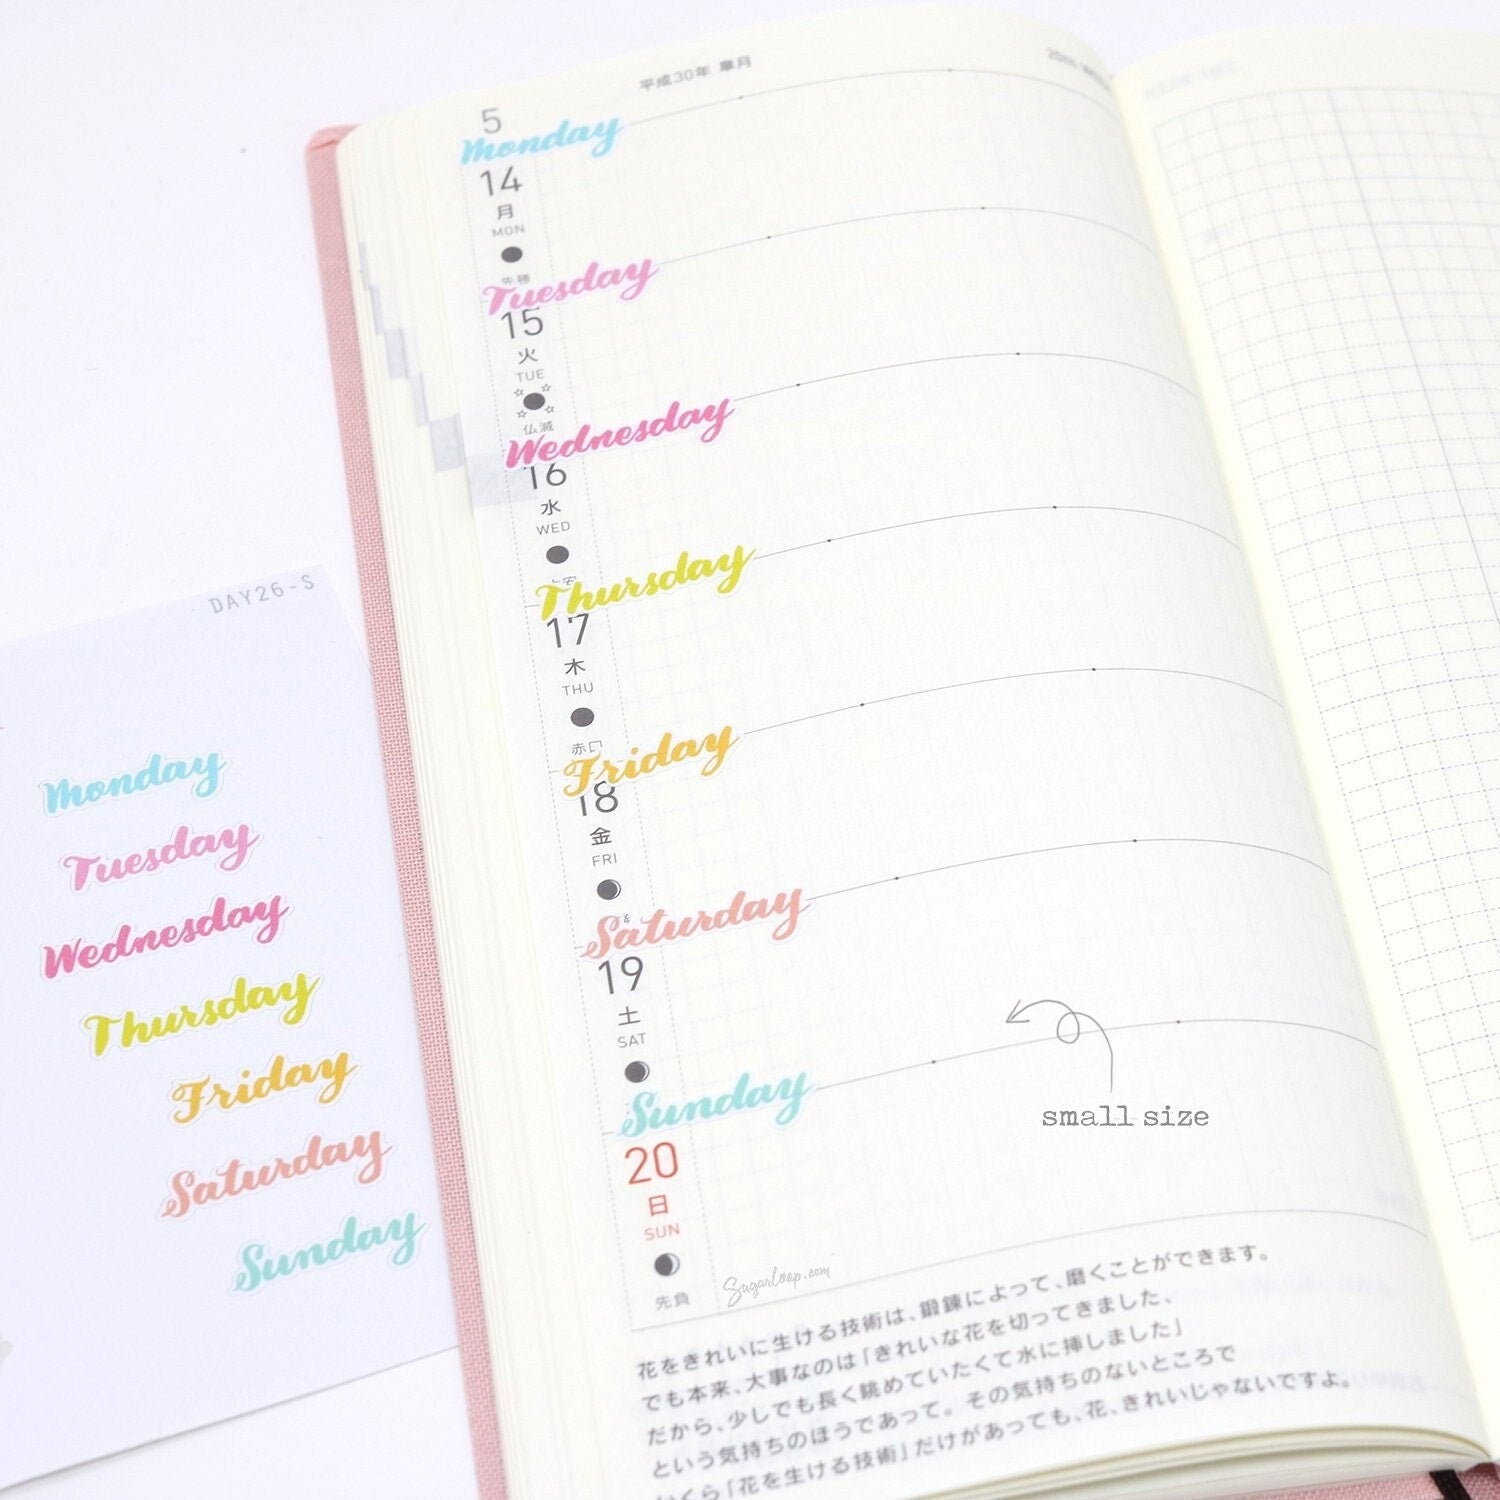 平成30年 皐月
5
Monday
14
月
MON
先勝
Tuesday
15
火
TUE
仏滅
Wednesday
16
水
WED
Thursday
17
木
THU
赤口
Friday
18
金
FRI
Saturday
19
土
SAT
Sunday
20
日
SUN
先負
small size
Sugarloop.com
花をきれいに生ける技術は、鍛錬によって、磨くことができます。
でも本来、大事なのは「きれいな花を切ってきました、
だから、少しでも長く眺めていたくて水に挿しました」
という気持ちのほうであって。その気持ちのないところで
いくら「花を生ける技術」だけがあっても、花、きれいじゃないですよ。
DAY26-S
Monday
Tuesday
Wednesday
Thursday
Friday
Saturday
Sunday